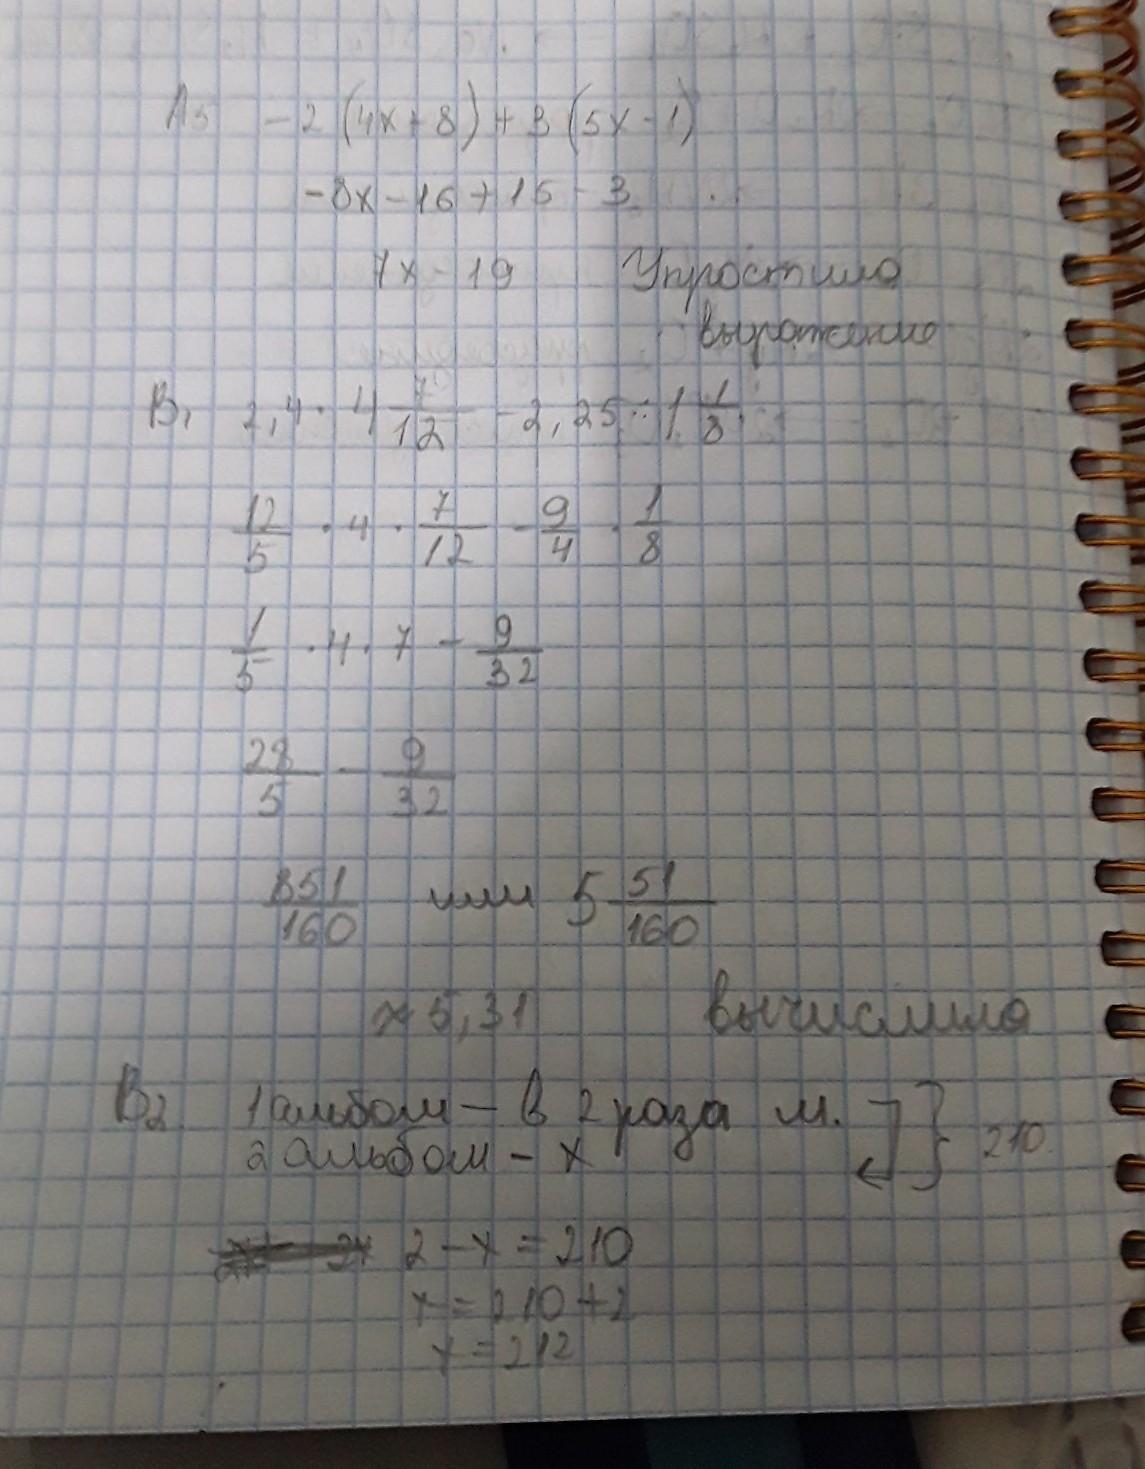 А5 -2(4x+8)+3(5x-1)
-8x-16+15-3
7x-19 Упростила
выражение
В1 2,4 · 4 7/12 - 2,25 : 1 1/8
12/5 · 4 · 7/12 - 9/4 · 1/8
1/5 · 4 · 7 - 9/32
28/5 - 9/32
851/160 или 5 51/160
≈ 5,31 вычислила
В2 1 альбом - в 2 раза м. 210
2 альбом - x
2-x=210
x=210+2
x=212